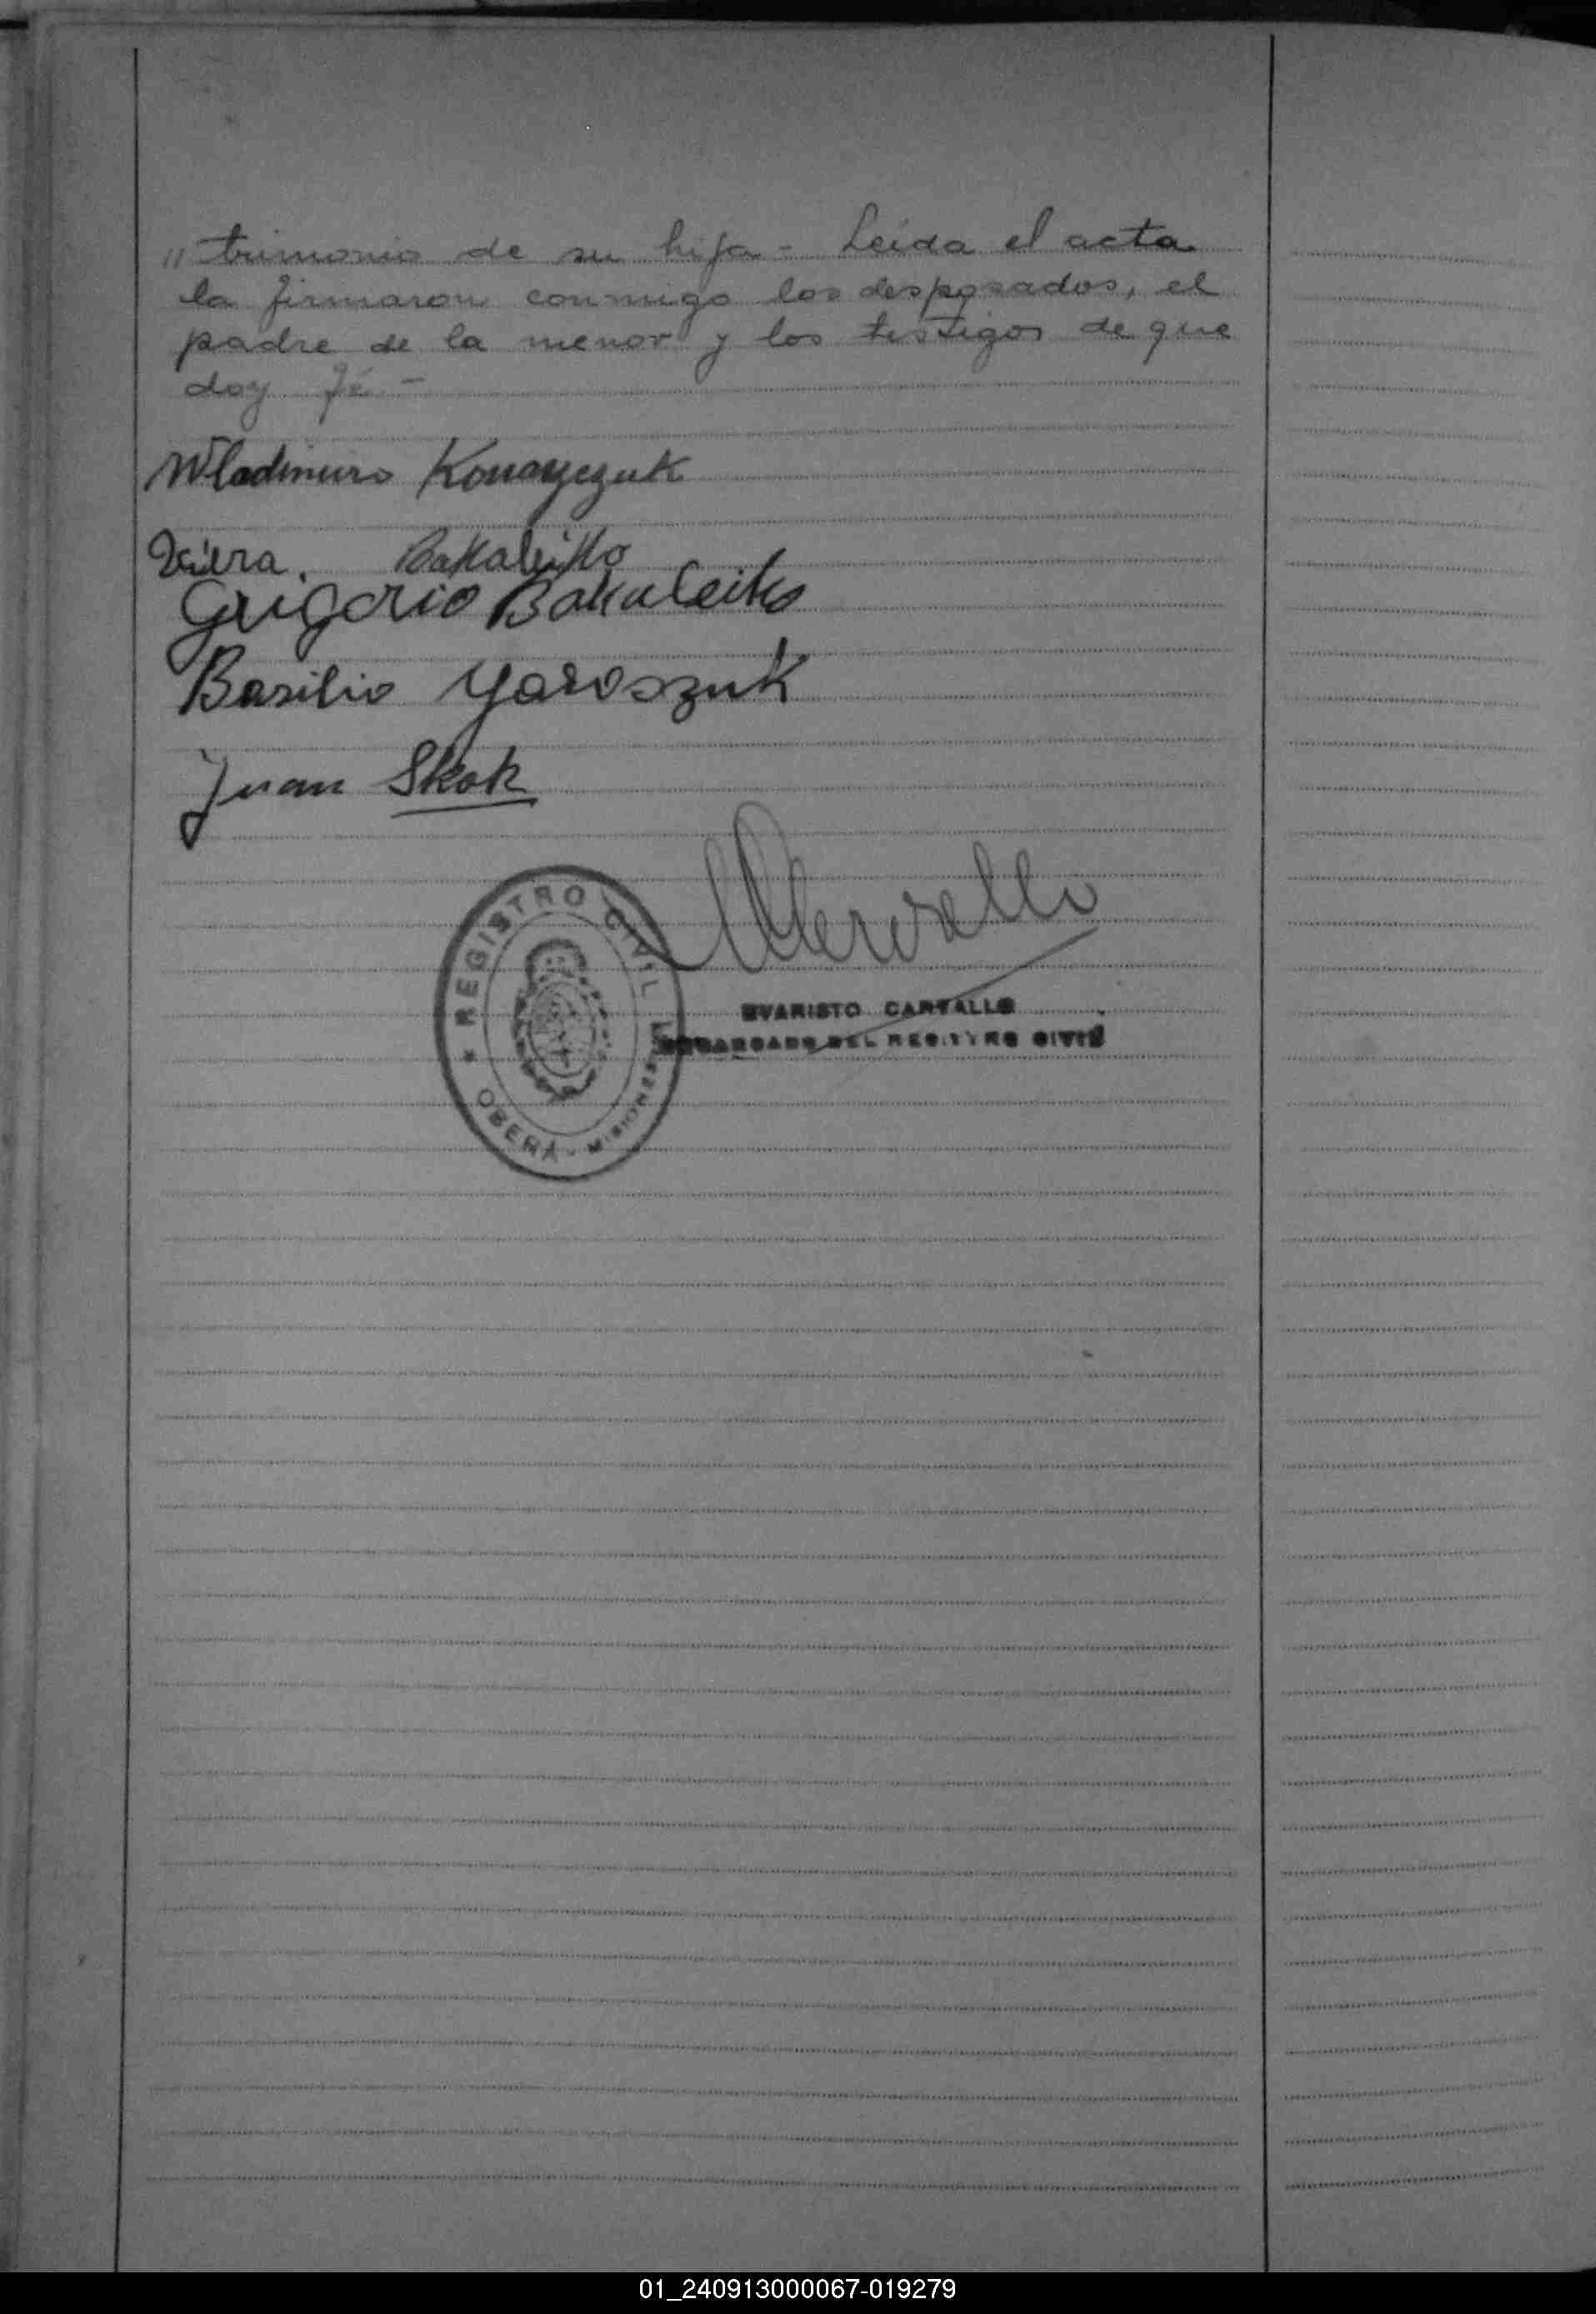 " trimonio de su hija - Leida el acta
la firmaron conmigo los desposados, el
padre de la menor y los testigos de que
doy fé -
Wladimiro
Viera. Bakaleiko
Grigorio Bakaleiko
Basilio Yaroszuk
Juan Skok
REGISTRO CIVIL
OBERÁ - MISIONES
EVARISTO CARVALLO
ENCARGADO DEL REGISTRO CIVIL
01_240913000067-019279